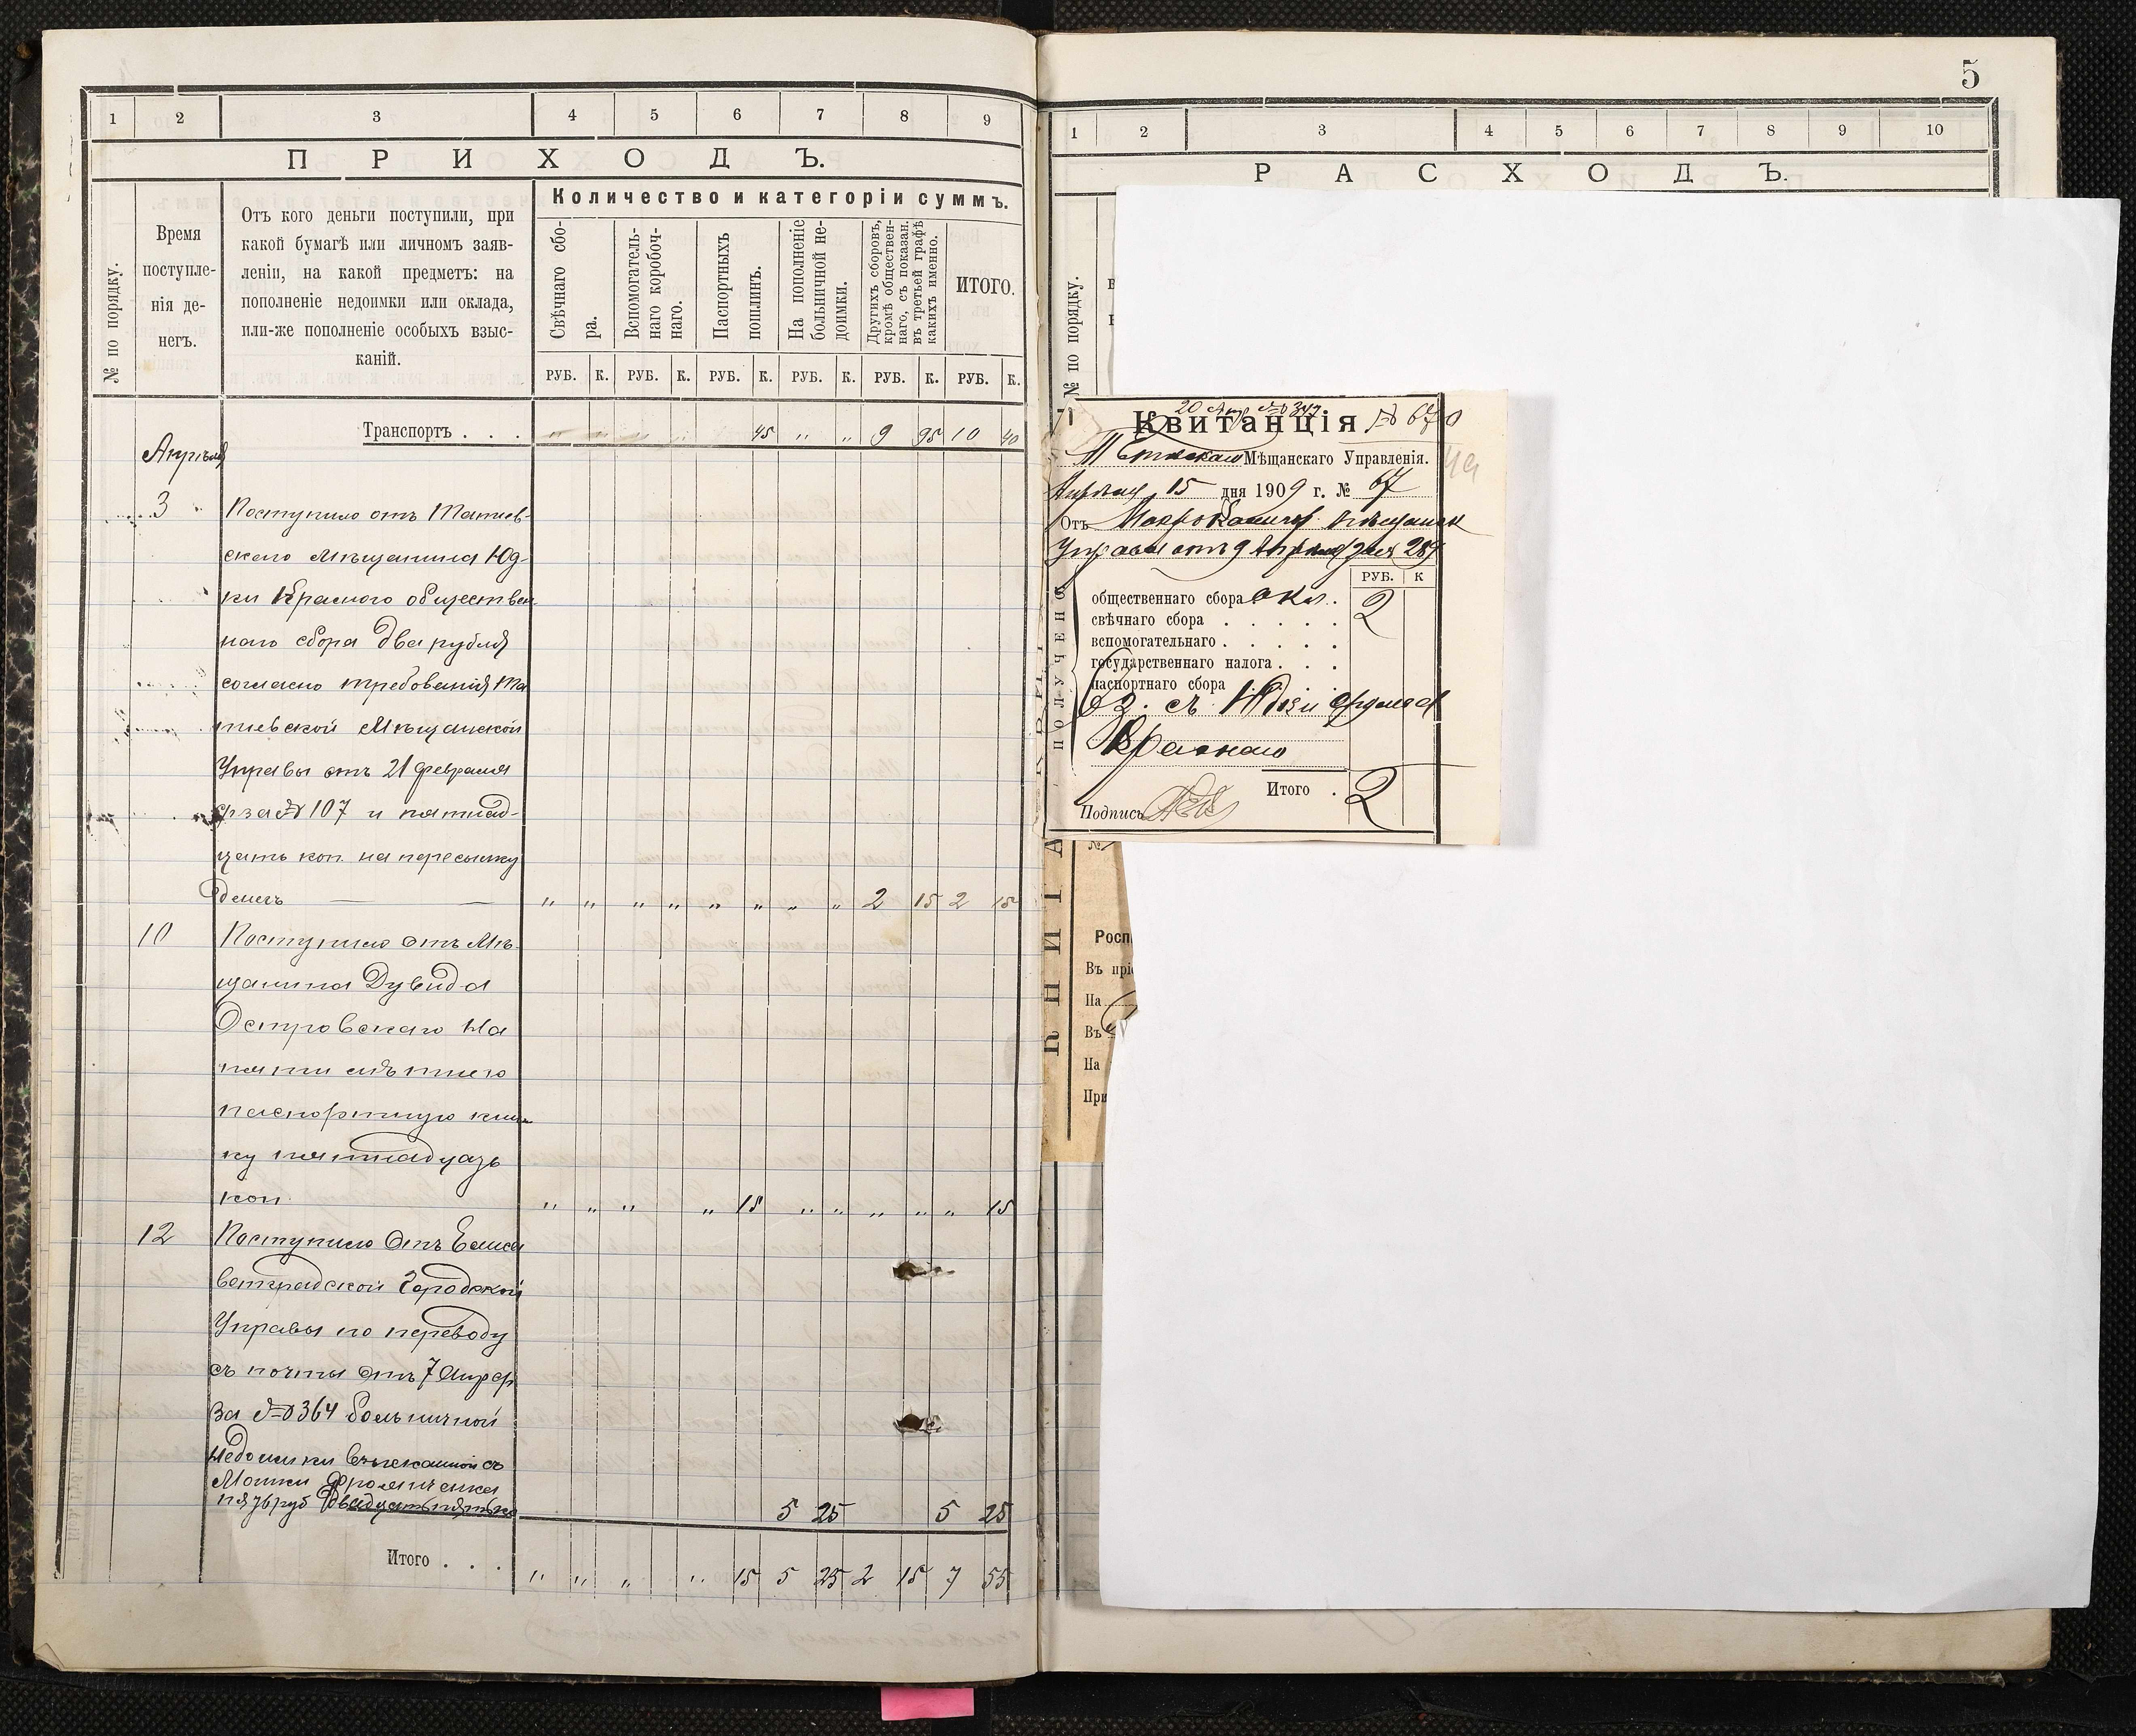 1 2 3 4 5 6 7 8 9
ПРИХОДЪ.
№ по порядку.
Время поступле-
нія де-
негъ.
Отъ кого деньги поступили, при
какой бумагѣ или личномъ заяв-
леніи, на какой предметъ: на
пополненіе недоимки или оклада,
или-же пополненіе особыхъ взыс-
каній.
Количество и категоріи суммъ.
Свѣчнаго сбо-
ра.
Вспомогатель-
наго коробоч-
наго.
Паспортныхъ
пошлинъ.
На пополненіе
больничной не-
доимки.
Другихъ сборовъ,
кромѣ обществен-
наго, съ показан.
въ третьей графѣ
какихъ именно.
ИТОГО.
РУБ. К. РУБ. К. РУБ. К. РУБ. К. РУБ. К. РУБ. К.
Транспортъ . . . 45 " " 9 95 10 40
Апрѣля
3 Поступило отъ
скаго мѣщанина Юд-
ки Краснаго обществен
наго сбора два рубля
согласно требованія
мѣщанской
Управы отъ 21 февраля
за № 107 и пятнад-
цать коп. на пересылку
денегъ — — " " " " " " " " 2 15 2 15
10 Поступило отъ мѣ-
щанина Дувида
Островскаго на
пяти лѣтнюю
паспортную книж
ку пятнадцать
коп. " " " " 15 " " " " " 15
12 Поступило отъ Елиса
ветградской Городской
Управы по переводу
съ почты отъ 7 Апр
за № 364 больничной
недоимки взысканной съ
Мошки
пять руб двадцать пять ко 5 25 5 25
Итого . . . " " " " 15 5 25 2 15 7 55
5
1 2 3 4 5 6 7 8 9 10
РАСХОДЪ.
№ по порядку.
20 Апр № 347
Квитанція № 670
Мѣщанскаго Управленія.
Апрѣля 15 дня 1909 г. № 67
Отъ мѣщанск
Управы отъ 9 Апрѣля
РУБ. К
ПОЛУЧЕНО
общественнаго сбора окл. 2
свѣчнаго сбора . . . . .
вспомогательнаго . . . . .
государственнаго налога . . .
паспортнаго сбора
съ
Краснаго
Итого . 2
Подпись
Росп
Въ прі
На
Въ
На
При